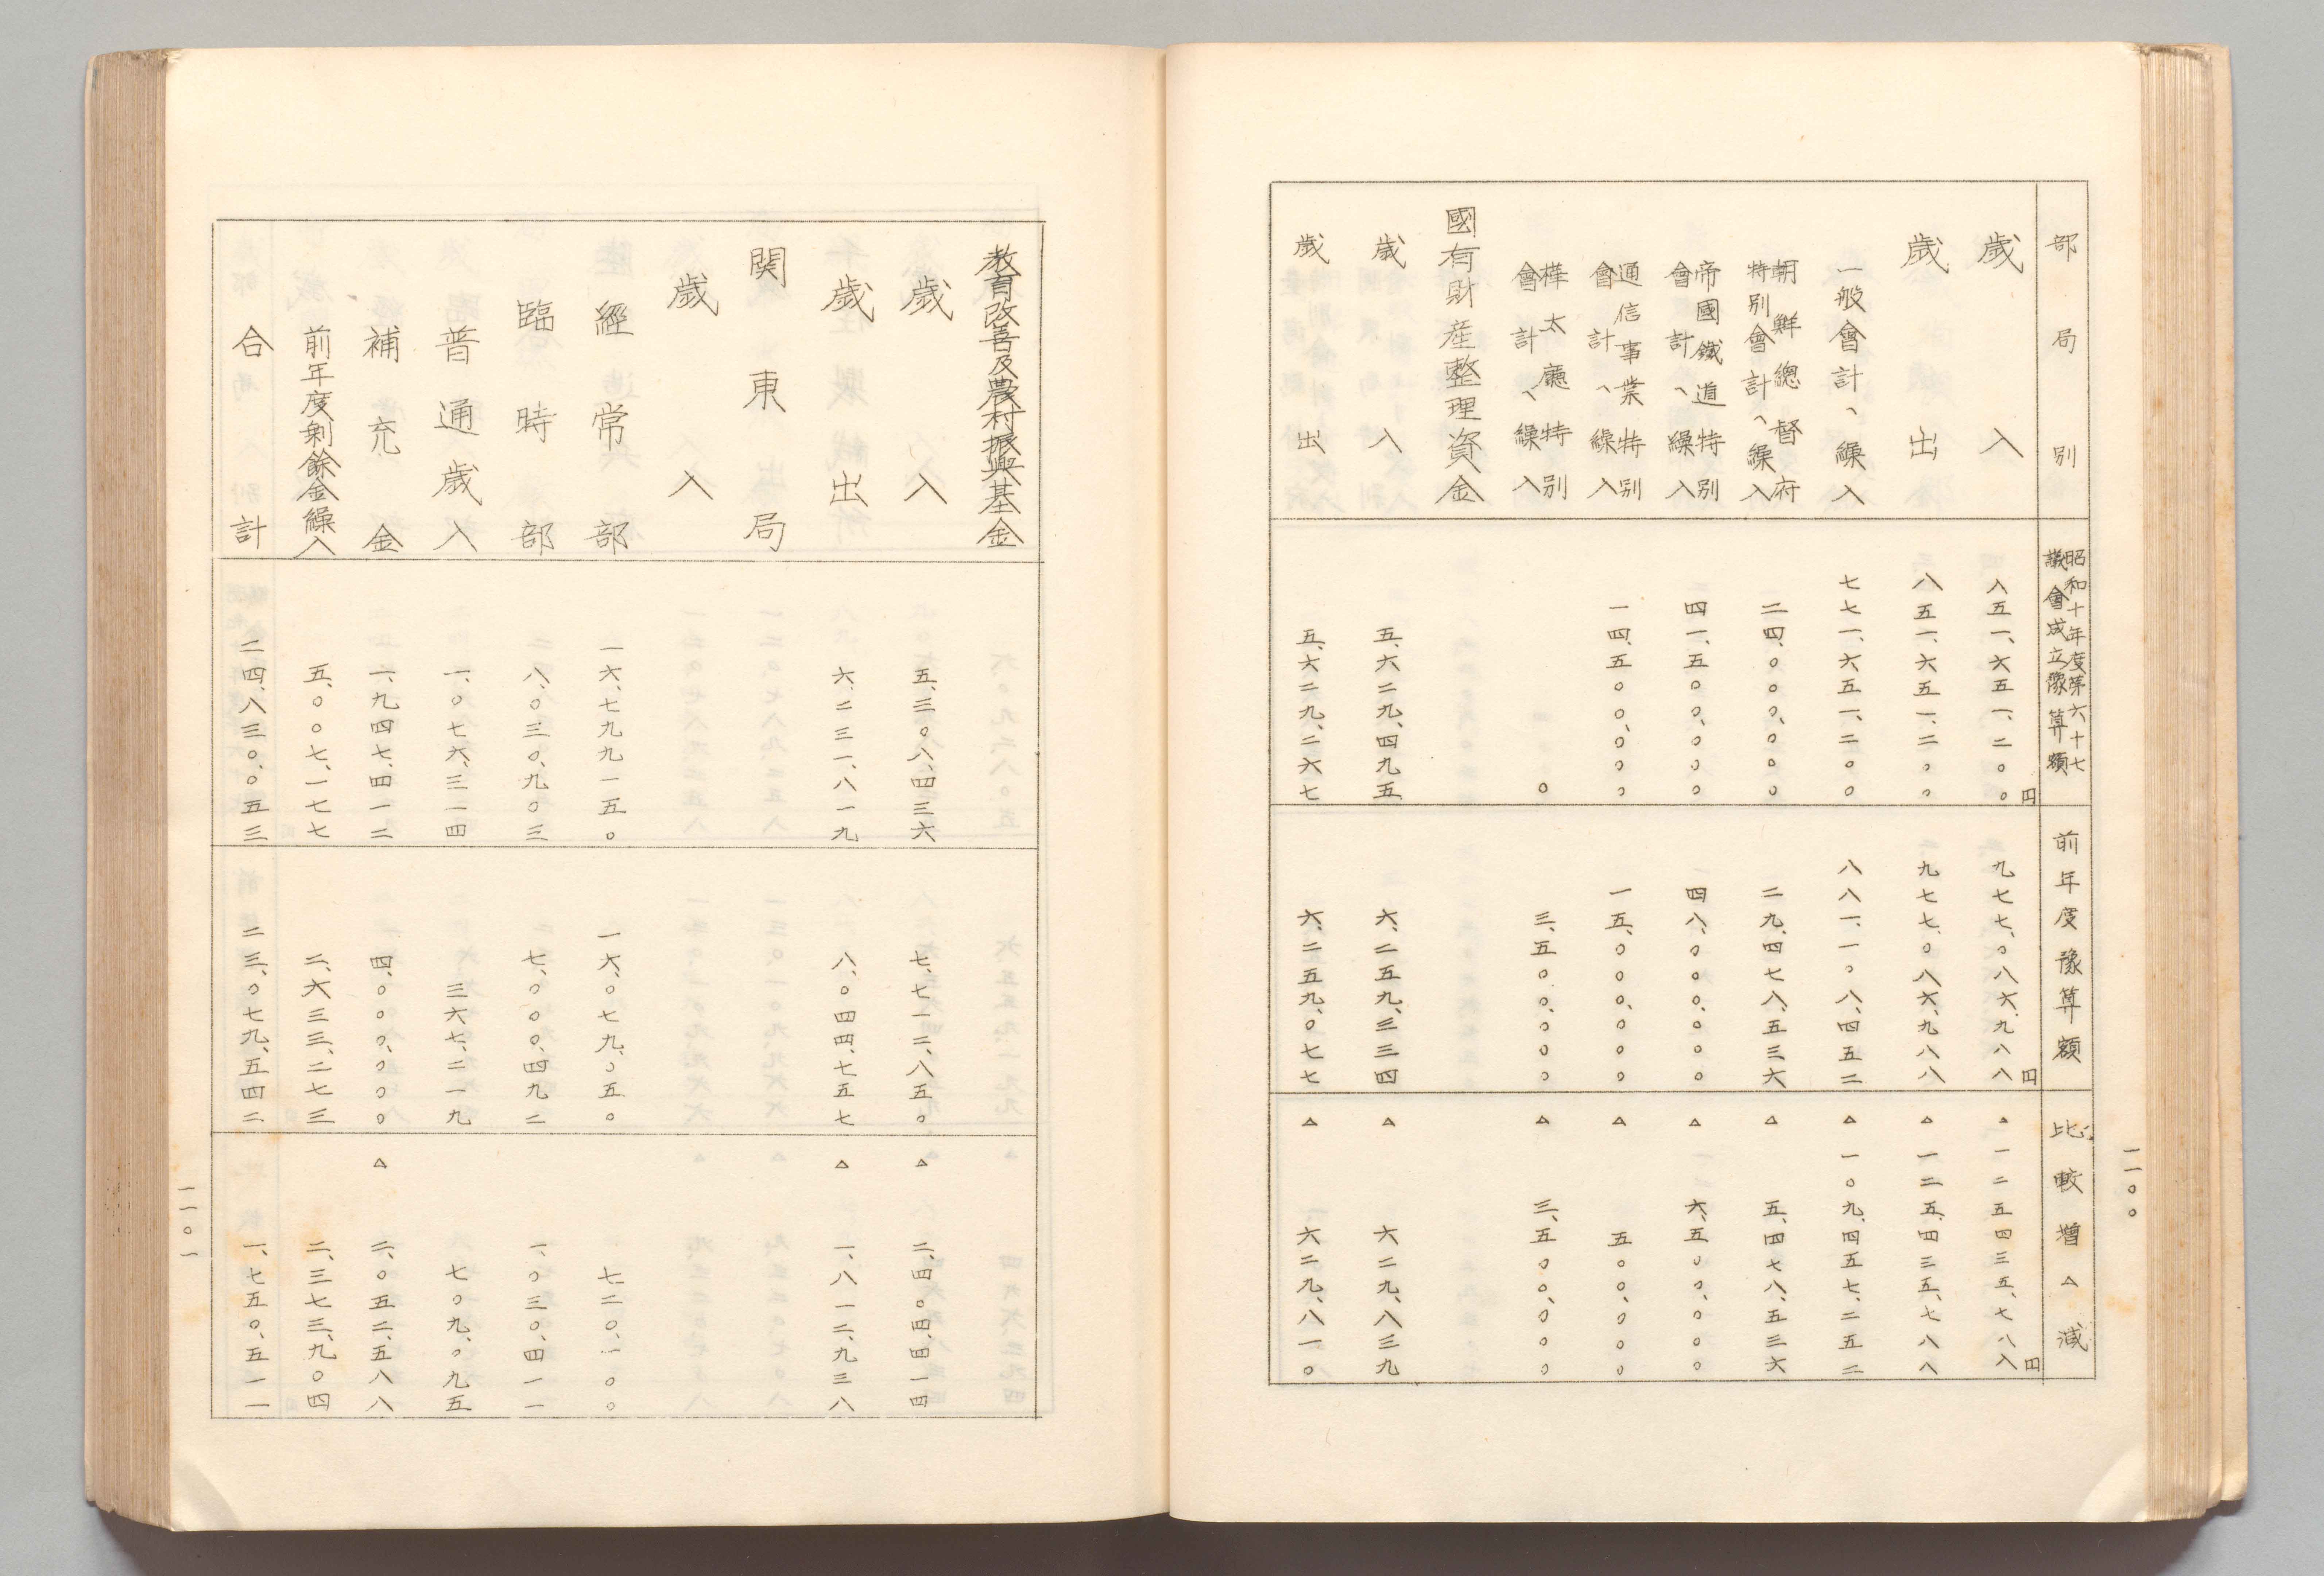 一一〇〇
部局別 昭和十年度第六十七議會成立豫算額 前年度豫算額 比較増△減
歳入 八五一、六五一、二〇〇円 九七七、〇八六、九八八円 △一二五四三五、七八八円
歳出 八五一、六五一、二〇〇 九七七、〇八六、九八八 △一二五、四三五、七八八
一般會計ヘ繰入 七七一、六五一、二〇〇 八八一、一〇八、四五二 △一〇九、四五七、二五二
朝鮮總督府
特別會計ヘ繰入 二四、〇〇〇、〇〇〇 二九、四七八、五三六 △五、四七八、五三六
帝國鐵道特別
會計ヘ繰入 四一、五〇〇、〇〇〇 四八、〇〇〇、〇〇〇 △六、五〇〇、〇〇〇
通信事業特別
會計ヘ繰入 一四、五〇〇、〇〇〇 一五、〇〇〇、〇〇〇 △五〇〇、〇〇〇
樺太廳特別
會計ヘ繰入 〇 三、五〇〇、〇〇〇 △三、五〇〇、〇〇〇
國有財産整理資金
歳入 五、六二九、四九五 六、二五九、三三四 △六二九、八三九
歳出 五、六二九、二六七 六、二五九、〇七七 △六二九、八一〇
教育改善及農村振興基金
歳入 五、三〇八、四三六 七、七一二、八五〇 △二、四〇四、四一四
歳出 六、二三一、八一九 八、〇四四、七五七 △一、八一二、九三八
関東局
歳入
經常部 一六、七九九一五〇 一六、〇七九、〇五〇 七二〇、一〇〇
臨時部 八、〇三〇、九〇三 七、〇〇〇、四九二 一、〇三〇、四一一
普通歳入 一、〇七六、三一四 三六七、二一九 七〇九、〇九五
補充金 一、九四七、四一二 四、〇〇〇、〇〇〇 △二、〇五二、五八八
前年度剰餘金繰入 五、〇〇七、一七七 二、六三三、二七三 二、三七三、九〇四
合計 二四、八三〇、〇五三 二三、〇七九、五四二 一、七五〇、五一一
一一〇一